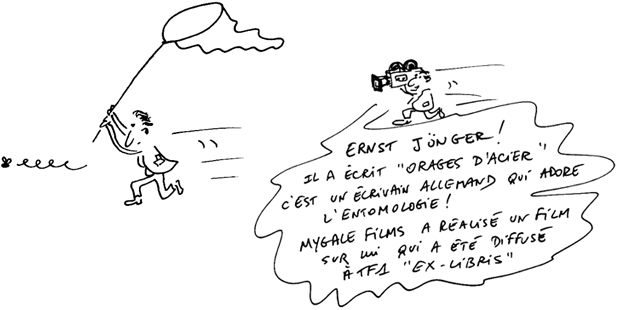 ERNST JÜNGER !
IL A ÉCRIT "ORAGES D'ACIER"
C'EST UN ÉCRIVAIN ALLEMAND QUI ADORE
L'ENTOMOLOGIE !
MYGALE FILMS A RÉALISÉ UN FILM
SUR LUI QUI A ÉTÉ DIFFUSÉ
À TF1 "EX-LIBRIS"